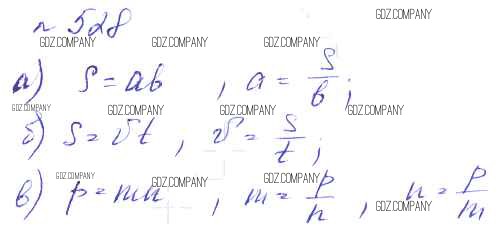 GDZ.COMPANY
n 528
GDZ.COMPANY GDZ.COMPANY GDZ.COMPANY
а) S = ab , a = S/b ;
GDZ.COMPANY GDZ.COMPANY GDZ.COMPANY GDZ.COMPANY
б) S = vt , v = S/t ;
GDZ.COMPANY GDZ.COMPANY GDZ.COMPANY
в) p = mn , m = p/n , n = p/m
GDZ.COMPANY